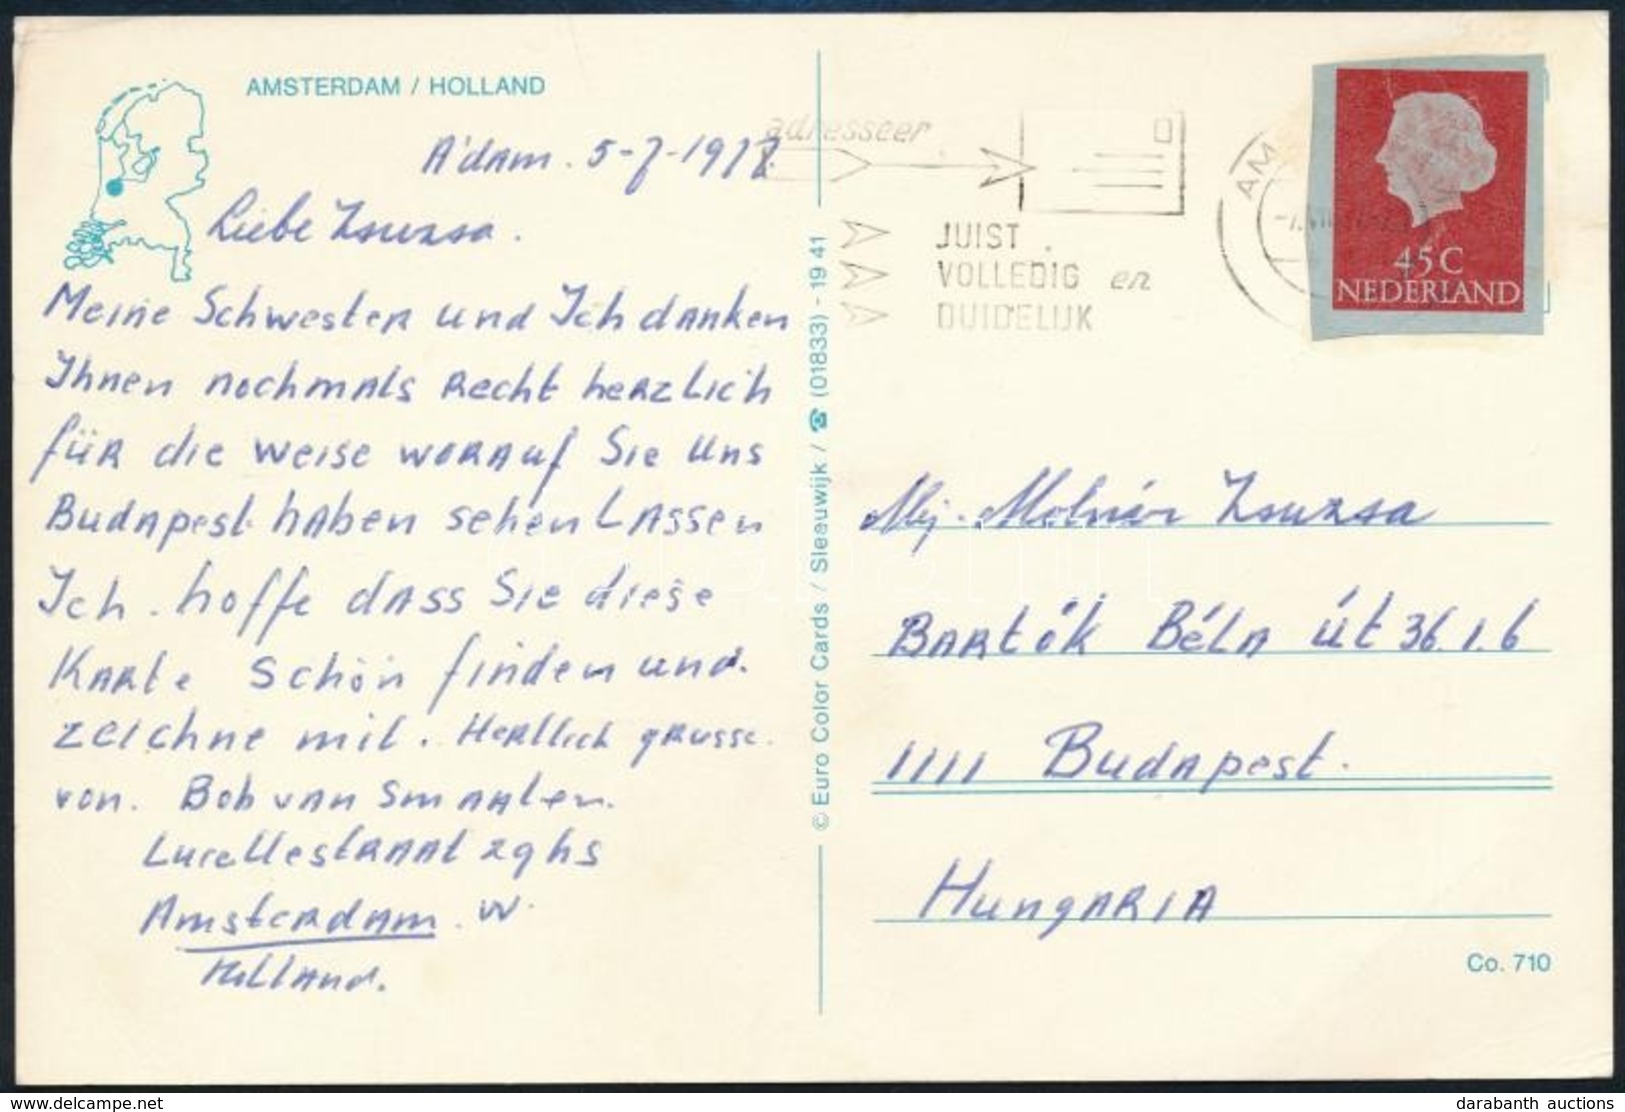 AMSTERDAM / HOLLAND
A'dam. 5-7-1977.
Liebe Zsuzsa.
Meine Schwester und Ich danken
Ihnen nochmals recht herzlich
für die weise worauf Sie uns
Budapest haben sehen Lassen
Ich. hoffe dass Sie diese
Karte schön finden und.
zeichne mit. Herllich grusse.
von. Bob van Smaalen.
Lucellestraat 29hs
Amsterdam. W.
Holland.
© Euro Color Cards / Sleeuwijk / ☎ (01833) - 19 41
adresseer
JUIST
VOLLEDIG en
DUIDELIJK
AM
45C
NEDERLAND
Mej. Molnár Zsuzsa
Bartók Béla út 36.1.6
1111 Budapest.
Hungaria
Co. 710
delcampe.net
darabanth auctions